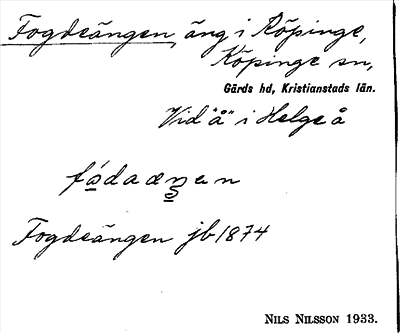 Fogdeängen, äng i Köpinge,
Köpinge sn,
Gärds hd, Kristianstads län.
Vid "å" i Helge å
fådaæŋen
Fogdeängen jb 1874
NILS NILSSON 1933.